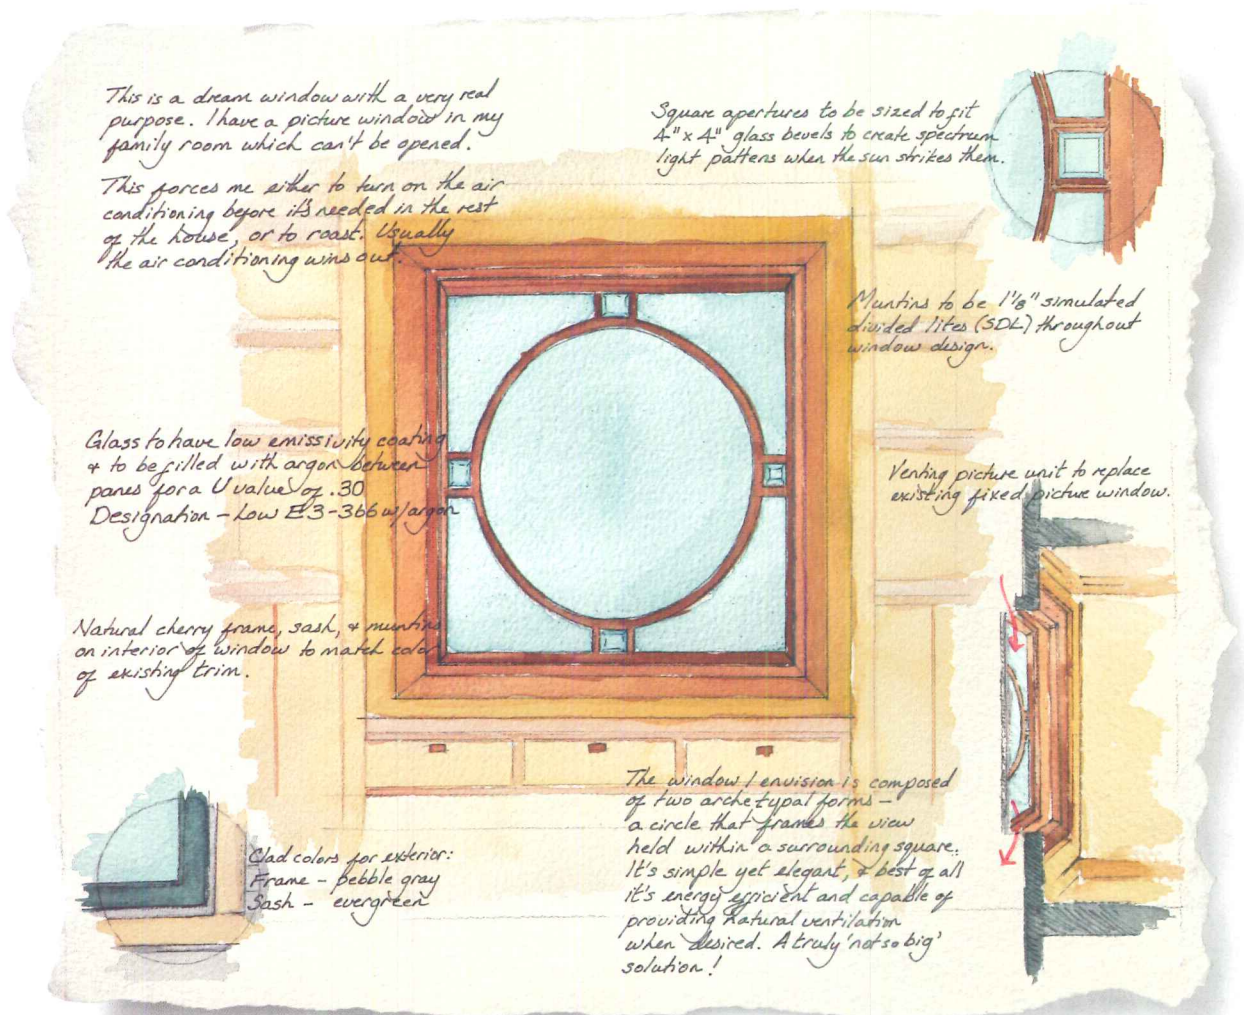 This is a dream window with a very real
purpose. I have a picture window in my
family room which can't be opened.
This forces me either to turn on the air
conditioning before it's needed in the rest
of the house, or to roast. Usually
the air conditioning wins out.
Square apertures to be sized to fit
4" x 4" glass bevels to create spectrum
light pattens when the sun strikes them.
Muntins to be 1 1/8" simulated
divided lites (SDL) throughout
window design.
Glass to have low emissivity coating
& to be filled with argon between
panes for a U value of .30
Designation – Low E3-366 w/argon
Venting picture unit to replace
existing fixed picture window.
Natural cherry frame, sash, & muntins
on interior of window to match color
of existing trim.
Clad colors for exterior:
Frame – pebble gray
Sash – evergreen
The window I envision is composed
of two archetypal forms –
a circle that frames the view
held within a surrounding square.
It's simple yet elegant, & best of all
it's energy efficient and capable of
providing natural ventilation
when desired. A truly 'not so big'
solution!